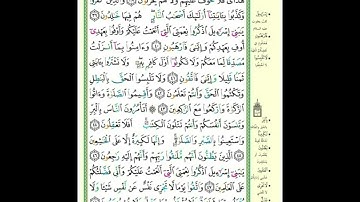 هُدَايَ فَلَا خَوْفٌ عَلَيْهِمْ وَلَا هُمْ يَحْزَنُونَ ٣٨ وَالَّذِينَ كَفَرُوا
وَكَذَّبُوا بِـَٔايَٰتِنَآ أُو۟لَٰٓئِكَ أَصْحَٰبُ النَّارِ هُمْ فِيهَا خَٰلِدُونَ ٣٩
يَٰبَنِىٓ إِسْرَٰٓءِيلَ اذْكُرُوا نِعْمَتِىَ الَّتِىٓ أَنْعَمْتُ عَلَيْكُمْ وَأَوْفُوا بِعَهْدِىٓ
أُوفِ بِعَهْدِكُمْ وَإِيَّٰىَ فَارْهَبُونِ ٤٠ وَءَامِنُوا بِمَآ أَنزَلْتُ
مُصَدِّقًا لِّمَا مَعَكُمْ وَلَا تَكُونُوٓا أَوَّلَ كَافِرٍۭ بِهِۦ وَلَا تَشْتَرُوا بِـَٔايَٰتِى
ثَمَنًا قَلِيلًا وَإِيَّٰىَ فَاتَّقُونِ ٤١ وَلَا تَلْبِسُوا الْحَقَّ بِالْبَٰطِلِ
وَتَكْتُمُوا الْحَقَّ وَأَنتُمْ تَعْلَمُونَ ٤٢ وَأَقِيمُوا الصَّلَوٰةَ وَءَاتُوا
الزَّكَوٰةَ وَارْكَعُوا مَعَ الرَّٰكِعِينَ ٤٣ أَتَأْمُرُونَ النَّاسَ بِالْبِرِّ
وَتَنسَوْنَ أَنفُسَكُمْ وَأَنتُمْ تَتْلُونَ الْكِتَٰبَ أَفَلَا تَعْقِلُونَ ٤٤
وَاسْتَعِينُوا بِالصَّبْرِ وَالصَّلَوٰةِ وَإِنَّهَا لَكَبِيرَةٌ إِلَّا عَلَى الْخَٰشِعِينَ ٤٥
الَّذِينَ يَظُنُّونَ أَنَّهُم مُّلَٰقُوا رَبِّهِمْ وَأَنَّهُمْ إِلَيْهِ رَٰجِعُونَ ٤٦
يَٰبَنِىٓ إِسْرَٰٓءِيلَ اذْكُرُوا نِعْمَتِىَ الَّتِىٓ أَنْعَمْتُ عَلَيْكُمْ وَأَنِّى فَضَّلْتُكُمْ
عَلَى الْعَٰلَمِينَ ٤٧ وَاتَّقُوا يَوْمًا لَّا تَجْزِى نَفْسٌ عَن نَّفْسٍ شَيْـًٔا وَلَا